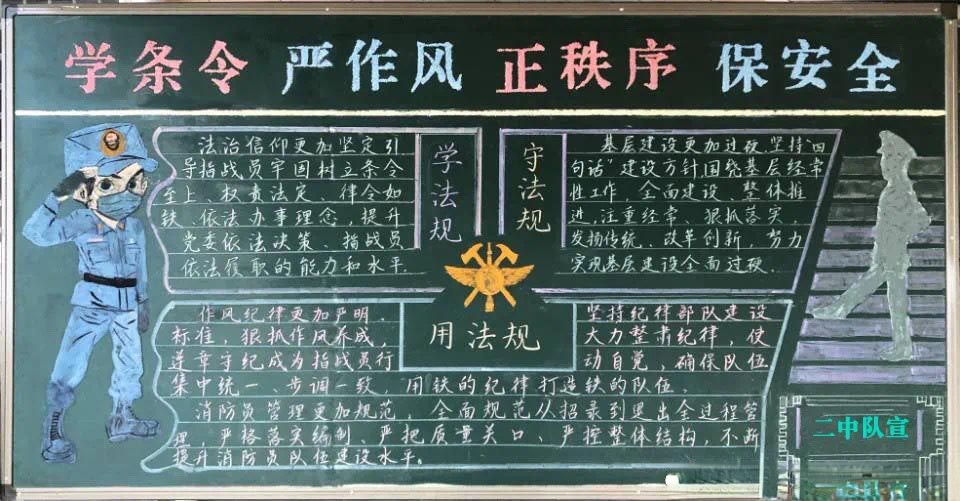 学条令 严作风 正秩序 保安全
法治信仰更加坚定引
导指战员牢固树立条令
至上、权责法定、律令如
铁、依法办事理念,提升
党委依法决策、指战员
依法履职的能力和水平.
学法规
守法规
基层建设更加过硬.坚持“四
句话”建设方针,围绕基层经常
性工作,全面建设、整体推
进,注重经常、狠抓落实,
发扬传统、改革创新,努力
实现基层建设全面过硬.
用法规
作风纪律更加严明、坚持纪律部队建设
标准,狠抓作风养成,大力整肃纪律,使
遵章守纪成为指战员行动自觉,确保队伍
集中统一、步调一致,用铁的纪律打造铁的队伍、
消防员管理更加规范,全面规范从招录到退出全过程管
理、严格落实编制、严把质量关口、严控整体结构,不断
提升消防员队伍建设水平。
二中队宣